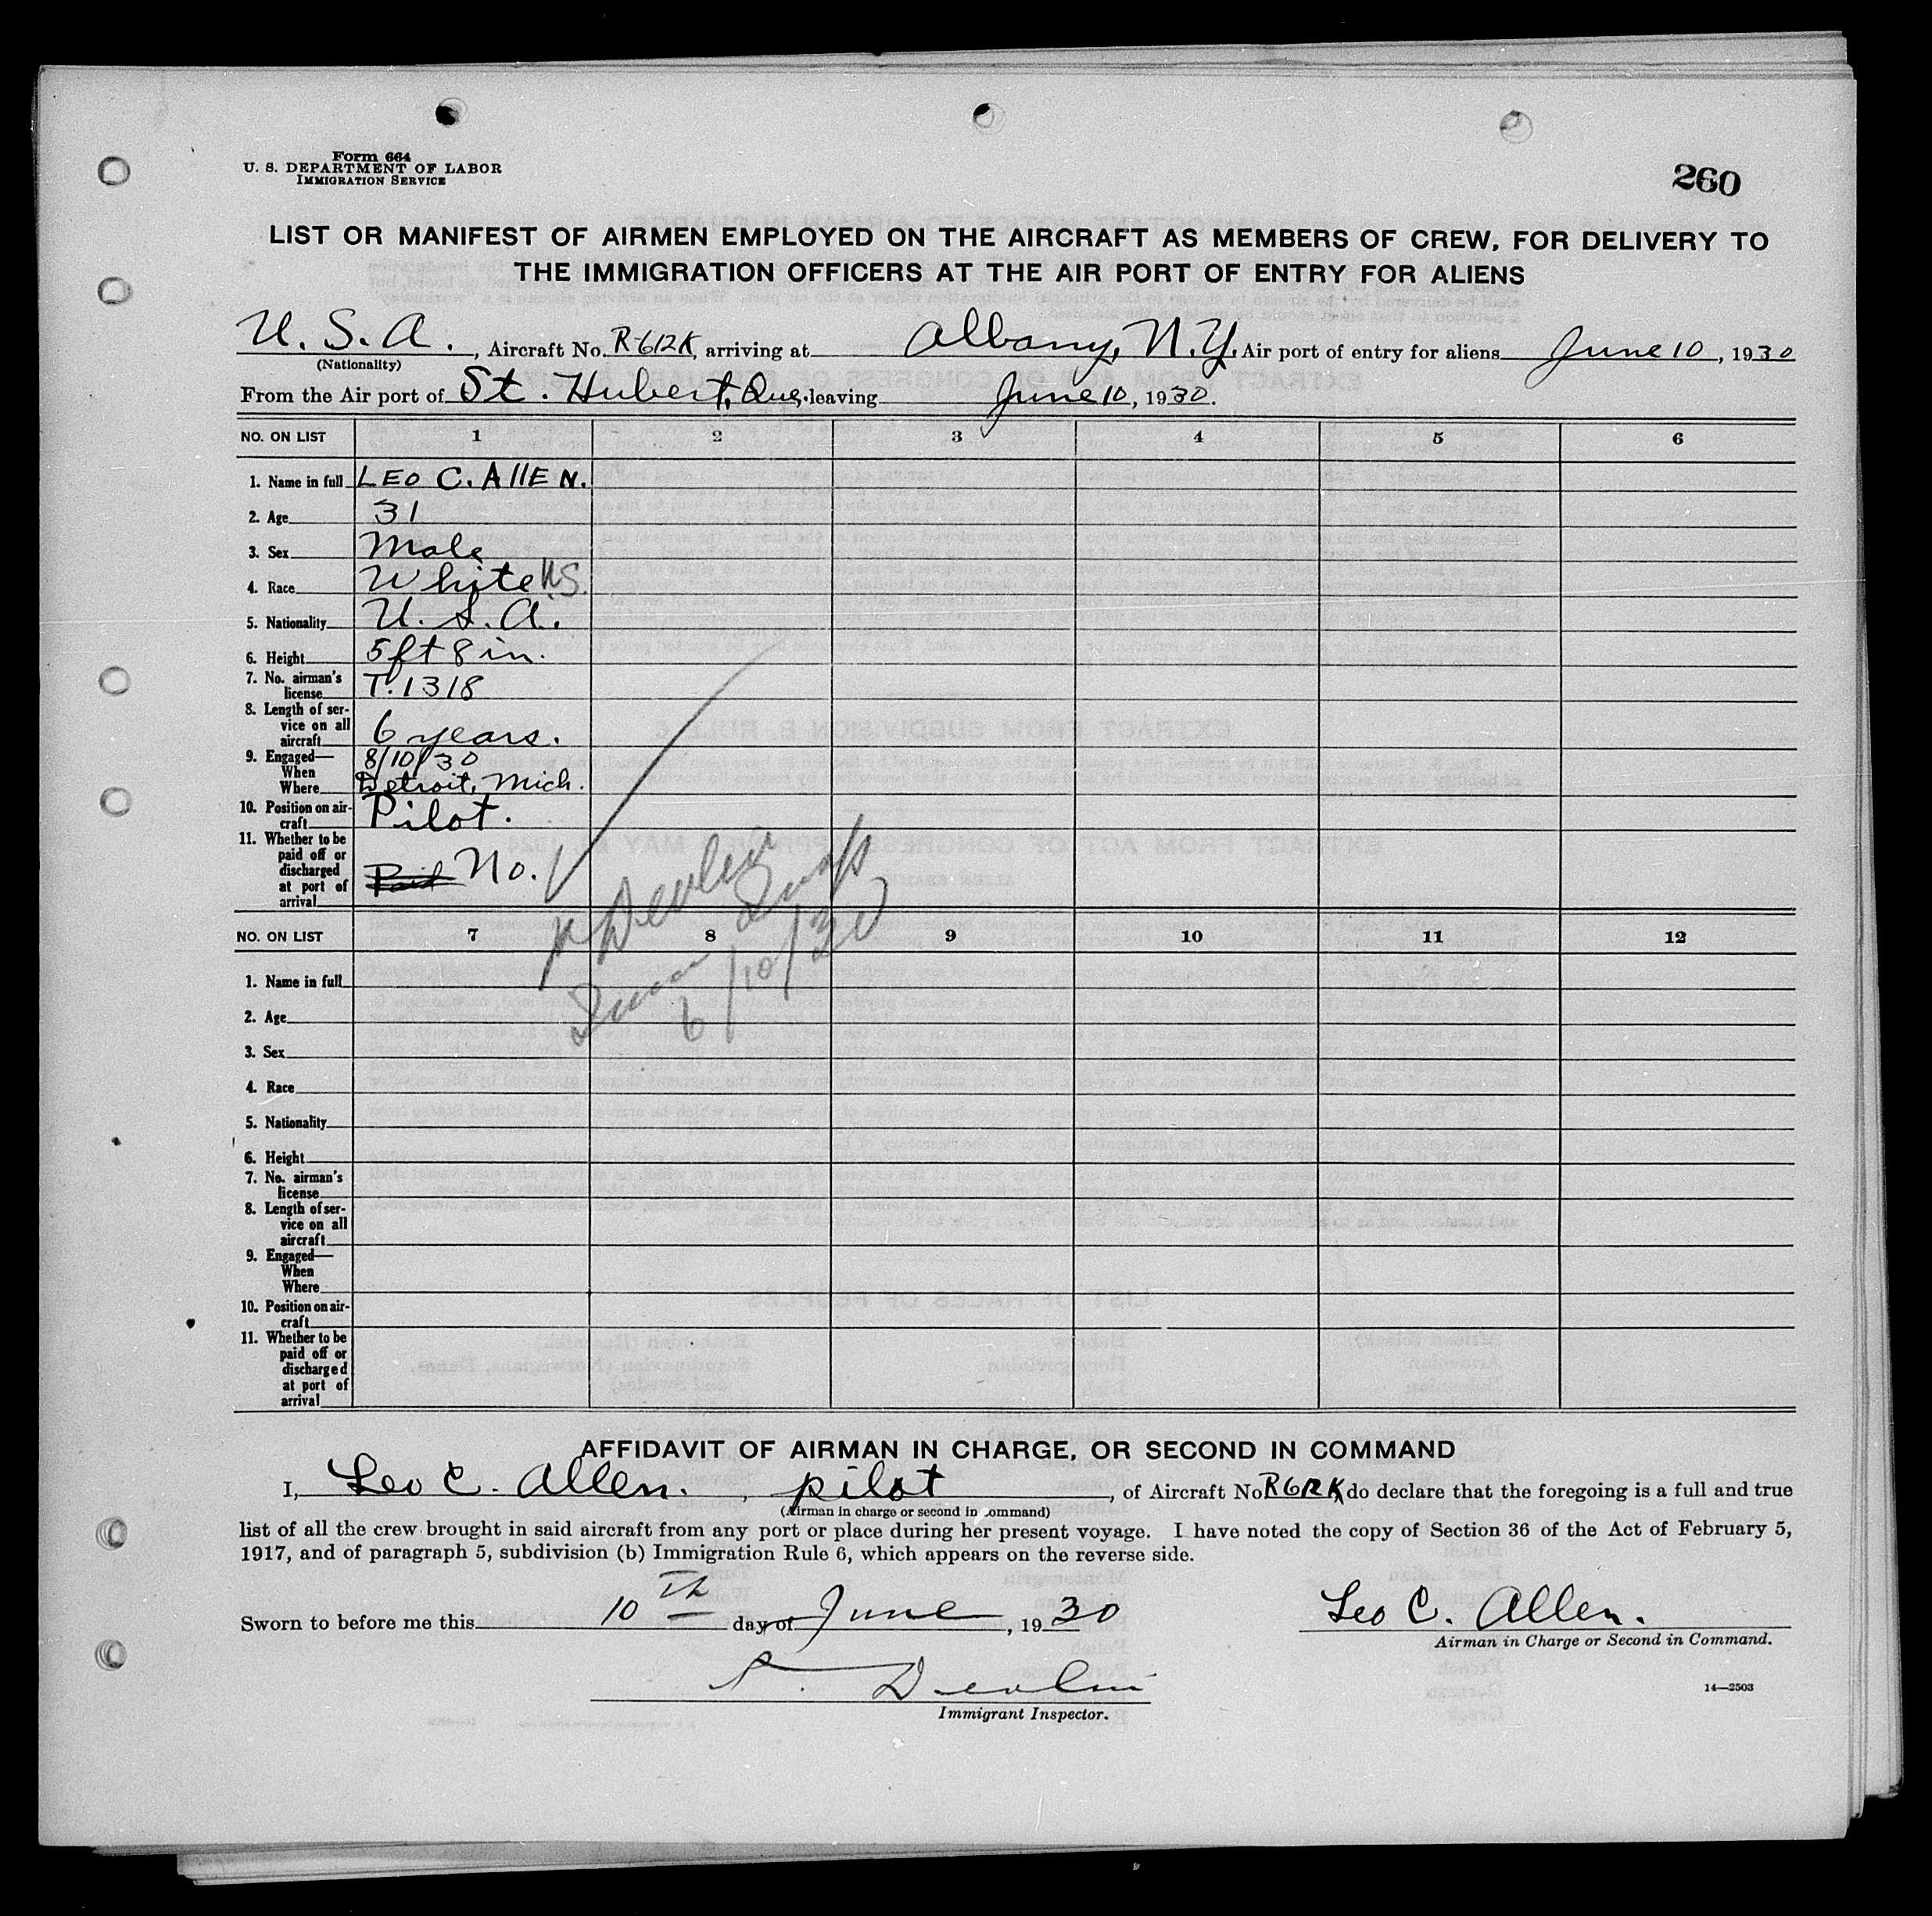 Form 664
U. S. DEPARTMENT OF LABOR
IMMIGRATION SERVICE
260
LIST OR MANIFEST OF AIRMEN EMPLOYED ON THE AIRCRAFT AS MEMBERS OF CREW, FOR DELIVERY TO
THE IMMIGRATION OFFICERS AT THE AIR PORT OF ENTRY FOR ALIENS
U. S. A., Aircraft No. R-612K, arriving at Albany, N. Y. Air port of entry for aliens June 10, 1930
(Nationality)
From the Air port of St. Hubert, Que. leaving June 10, 1930.
NO. ON LIST 1 2 3 4 5 6
1. Name in full LEO C. AllEN.
2. Age 31
3. Sex Male
4. Race White US.
5. Nationality U. S. A.
6. Height 5 ft 8 in.
7. No. airman's
license T. 1318
8. Length of ser-
vice on all
aircraft 6 years.
9. Engaged—
When 8/10/30
Where Detroit, Mich.
10. Position on air-
craft Pilot.
11. Whether to be
paid off or
discharged
at port of
arrival Paid No.
Devlin
Insp
6/10/30
NO. ON LIST 7 8 9 10 11 12
1. Name in full
2. Age
3. Sex
4. Race
5. Nationality
6. Height
7. No. airman's
license
8. Length of ser-
vice on all
aircraft
9. Engaged—
When
Where
10. Position on air-
craft
11. Whether to be
paid off or
discharged
at port of
arrival
AFFIDAVIT OF AIRMAN IN CHARGE, OR SECOND IN COMMAND
I, Leo C. Allen. , pilot, of Aircraft No R612K do declare that the foregoing is a full and true
(Airman in charge or second in command)
list of all the crew brought in said aircraft from any port or place during her present voyage. I have noted the copy of Section 36 of the Act of February 5,
1917, and of paragraph 5, subdivision (b) Immigration Rule 6, which appears on the reverse side.
Sworn to before me this 10 Th day of June, 1930
Leo C. Allen.
Airman in Charge or Second in Command.
Devlin
Immigrant Inspector.
14—2503